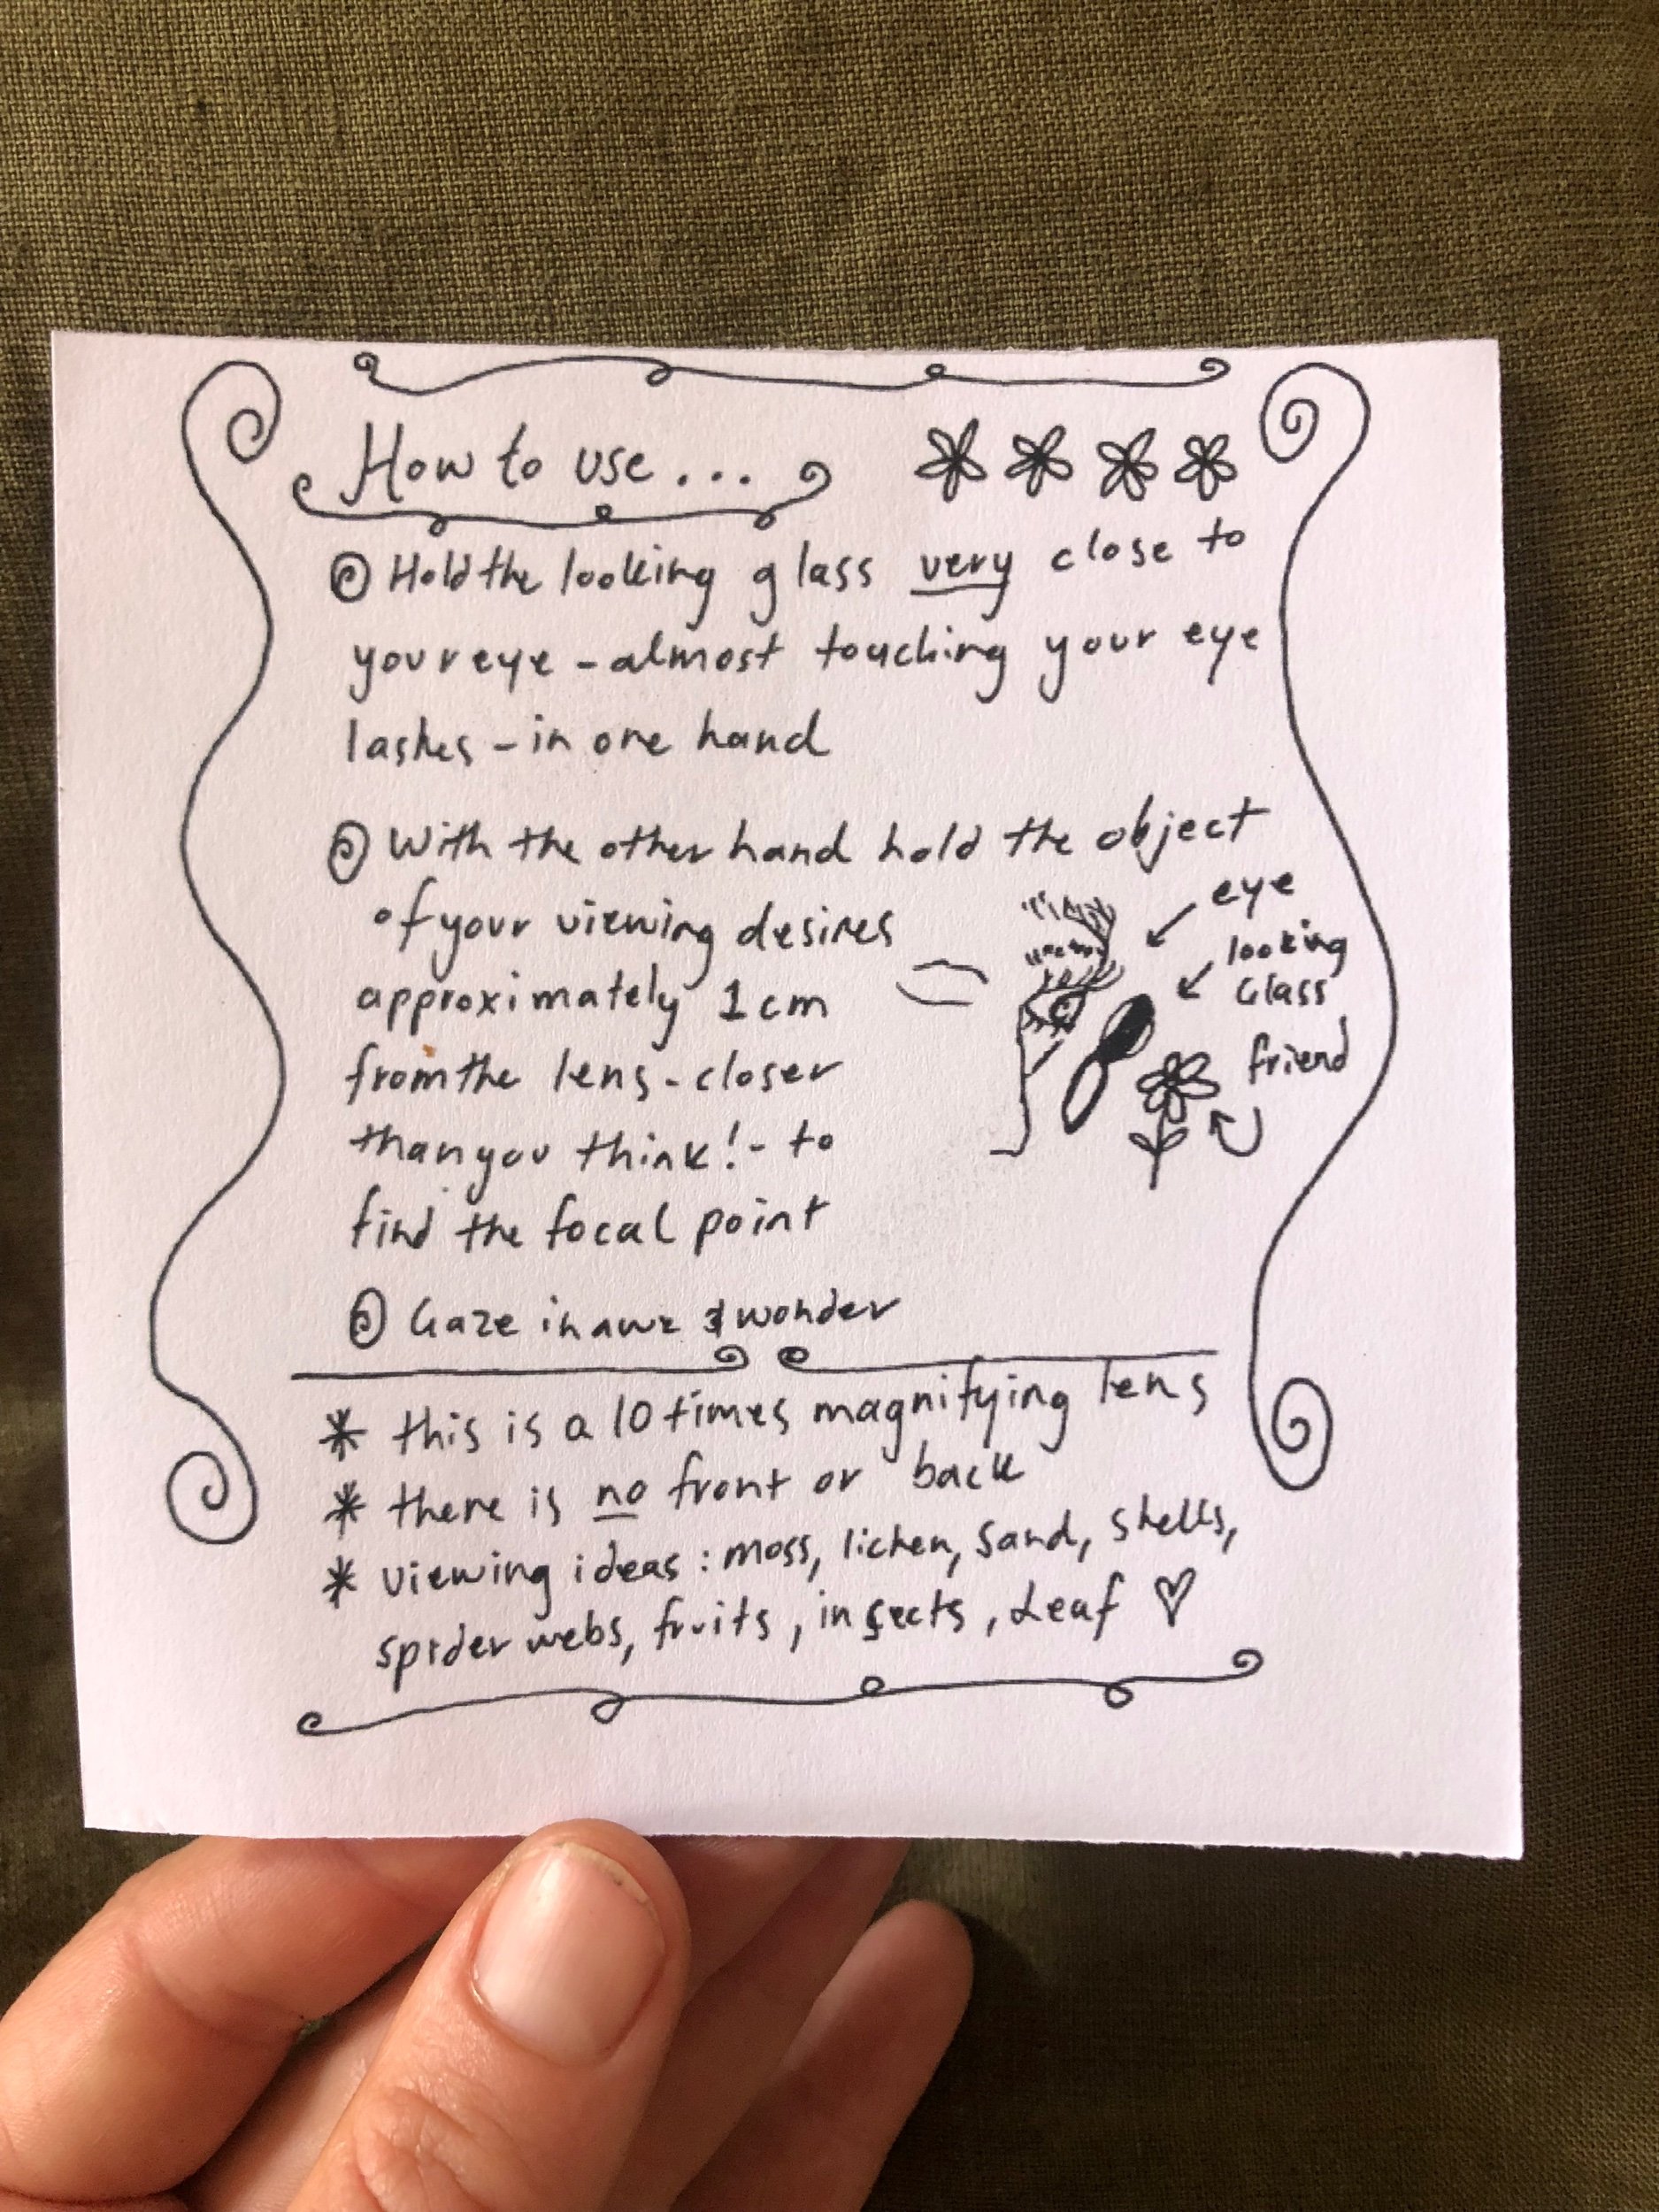 How to use...
Hold the looking glass very close to
your eye - almost touching your eye
lashes - in one hand
With the other hand hold the object
of your viewing desires
approximately 1cm
from the lens - closer
than you think! - to
find the focal point
eye
looking
Glass
friend
Gaze in awe & wonder
* this is a 10 times magnifying lens
* there is no front or back
* viewing ideas: moss, lichen, sand, shells,
spider webs, fruits, insects, Leaf ♡